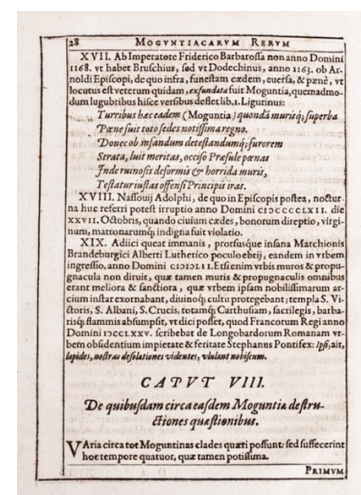 28 MOGVNTIACARVM RERVM
XVII. Ab Imperatore Friderico Barbarossa non anno Domini
1168. vt habet Bruschius, sed vt Dodechinus, anno 1163. ob Ar-
noldi Episcopi, de quo infra, funestam cædem, euersa, & pœnè, vt
locutus est veterum quidam, exfundata fuit Moguntia, quemadmo-
dum lugubribus hisce versibus deflet lib. 1. Ligurinus:
Turribus hæc eadem (Moguntia) quondã murisq; superba
Pœne sui toto sedes notissima regno.
Donec ob infandum detestandumq; furorem
Strata, luit meritas, occiso Præsule pœnas
Inde ruinosis deformis & horrida muris,
Testatur iustas offensi Principis iras.
XVIII. Nassouij Adolphi, de quo in Episcopis postea, noctur-
na huc referri potest irruptio anno Domini CIƆCCCCLXII. die
XXVII. Octobris, quando ciuium cædes, bonorum direptio, virgi-
num, matronarumq; indigna fuit violatio.
XIX. Adiici queat immanis, prorsusque insana Marchionis
Brandeburgici Alberti Lutherico poculo ebrij, eandem in vrbem
ingressio, anno Domini CIƆIƆLII. Etsi enim vrbis muros & propu-
gnacula non diruit, quæ tamen muris & propugnaculis omnibus
erant meliora & sanctiora, quæ vrbem ipsam nobilissimarum ar-
cium instar exornabant, diuinoq; cultu protegebant; templa S. Vi-
ctoris, S. Albani, S. Crucis, totamq; Carthusiam, sacrilegis, barba-
risq; flammis absumpsit, vt dici posset, quod Francorum Regi anno
Domini IƆCCLXXV. scribebat de Longobardorum Romanam vr-
bem obsidentium impietate & feritate Stephanus Pontifex: Ipsi, ait,
lapides, nostras desolationes videntes, vlulant nobiscum.
CAPVT VIII.
De quibusdam circa easdem Moguntiæ destru-
ctiones quæstionibus.
VAria circa tot Moguntinas clades quæri possunt: sed suffecerint
hoc tempore quatuor, quæ tamen potissima.
PRIMVM